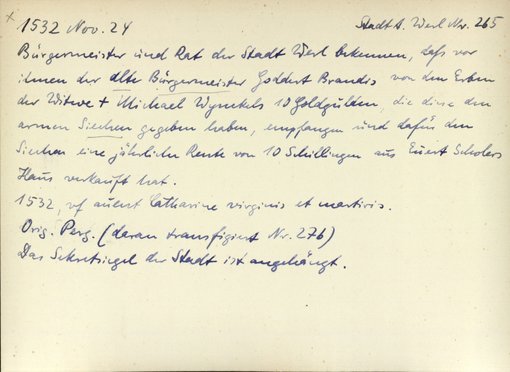 x 1532 Nov. 24 Stadt A. Werl Nr. 265
Bürgermeister und Rat der Stadt Werl bekennen, daß vor
ihnen der alte Bürgermeister Goddert Brandis von den Erben
der Witwe + Michael Wymkels 10 Goldgulden, die diese den
armen Siechen gegeben haben, empfangen und dafür den
Siechen eine jährliche Rente von 10 Schillingen aus Evert Scholers
Haus verkauft hat.
1532, uf avent Catharine virginis et martiris.
Orig. Perg. (daran transfigiert Nr. 276)
Das Sekretsiegel der Stadt ist angehängt.